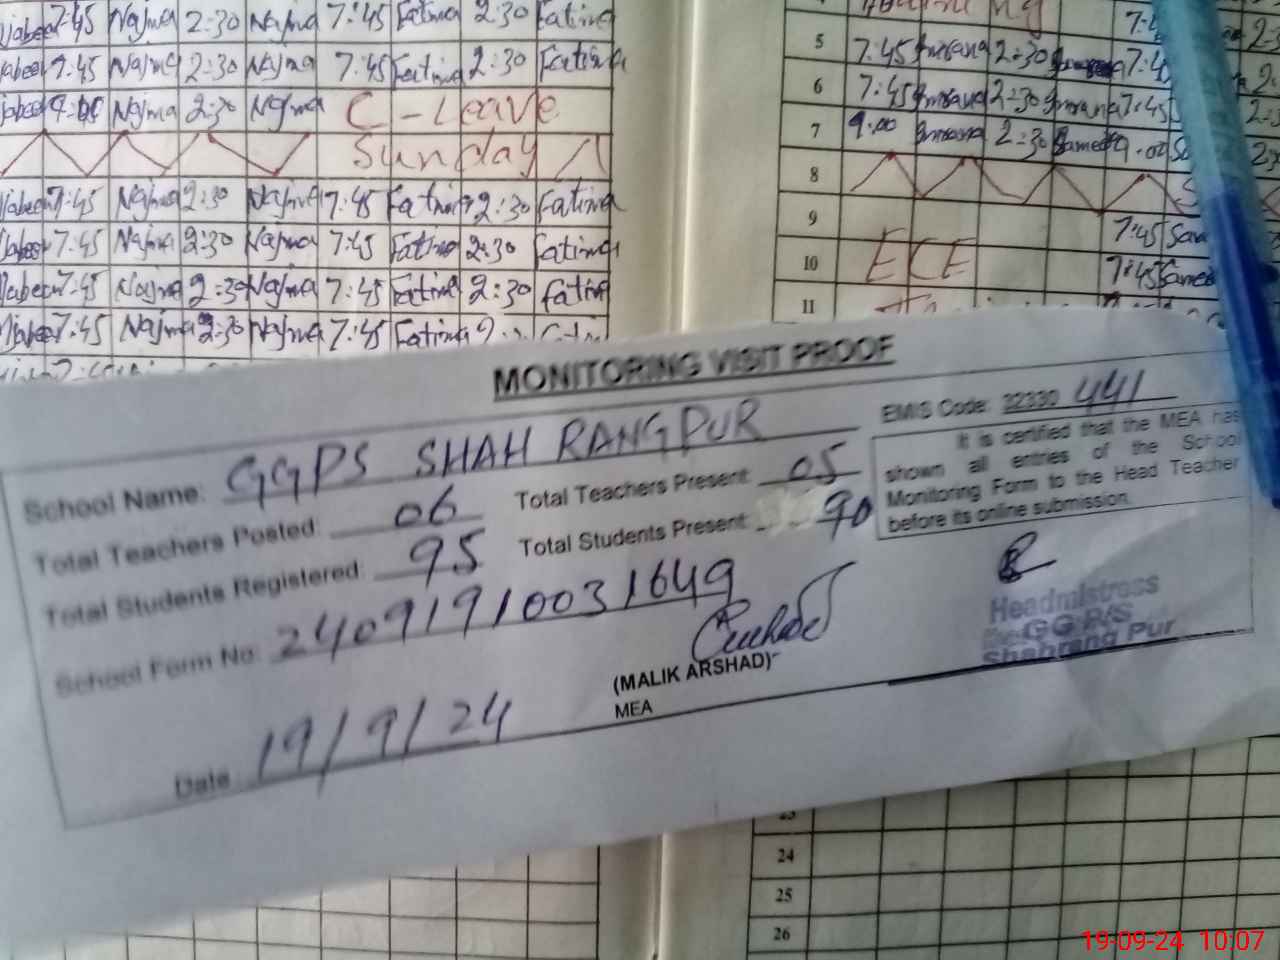 7:45 Najma 2:30 Najma 7:45 Fatima 2:30 Fatima
7:45 Najma 2:30 Najma 7:45 Fatima 2:30 Fatima
Najma 2:30 Najma C-Leave
Sunday
7:45 Najma 2:30 Najma 7:45 Fatima 2:30 Fatima
7:45 Najma 2:30 Najma 7:45 Fatima 2:30 Fatima
7:45 Najma 2:30 Najma 7:45 Fatima 2:30 Fatima
7:45 Najma 2:30 Najma 7:45 Fatima
5 7:45 Imrana 2:30
6 7:45 Imrana 2:30 Imrana 7:45
7 9:00 Imrana 2:30
8
9 7:45
10 ECE 7:45
11
MONITORING VISIT PROOF
School Name: GGPS SHAH RANGPUR EMIS Code: 32330 441
Total Teachers Posted: 06 Total Teachers Present: 05
Total Students Registered: 95 Total Students Present: 90
School Form No: 24091910031649
It is certified that the MEA has
shown all entries of the School
Monitoring Form to the Head Teacher
before its online submission.
(MALIK ARSHAD)
MEA
Headmistress
GGP/S
Shahrang Pur
Date 19/9/24
23
24
25
26
19-09-24 10:07